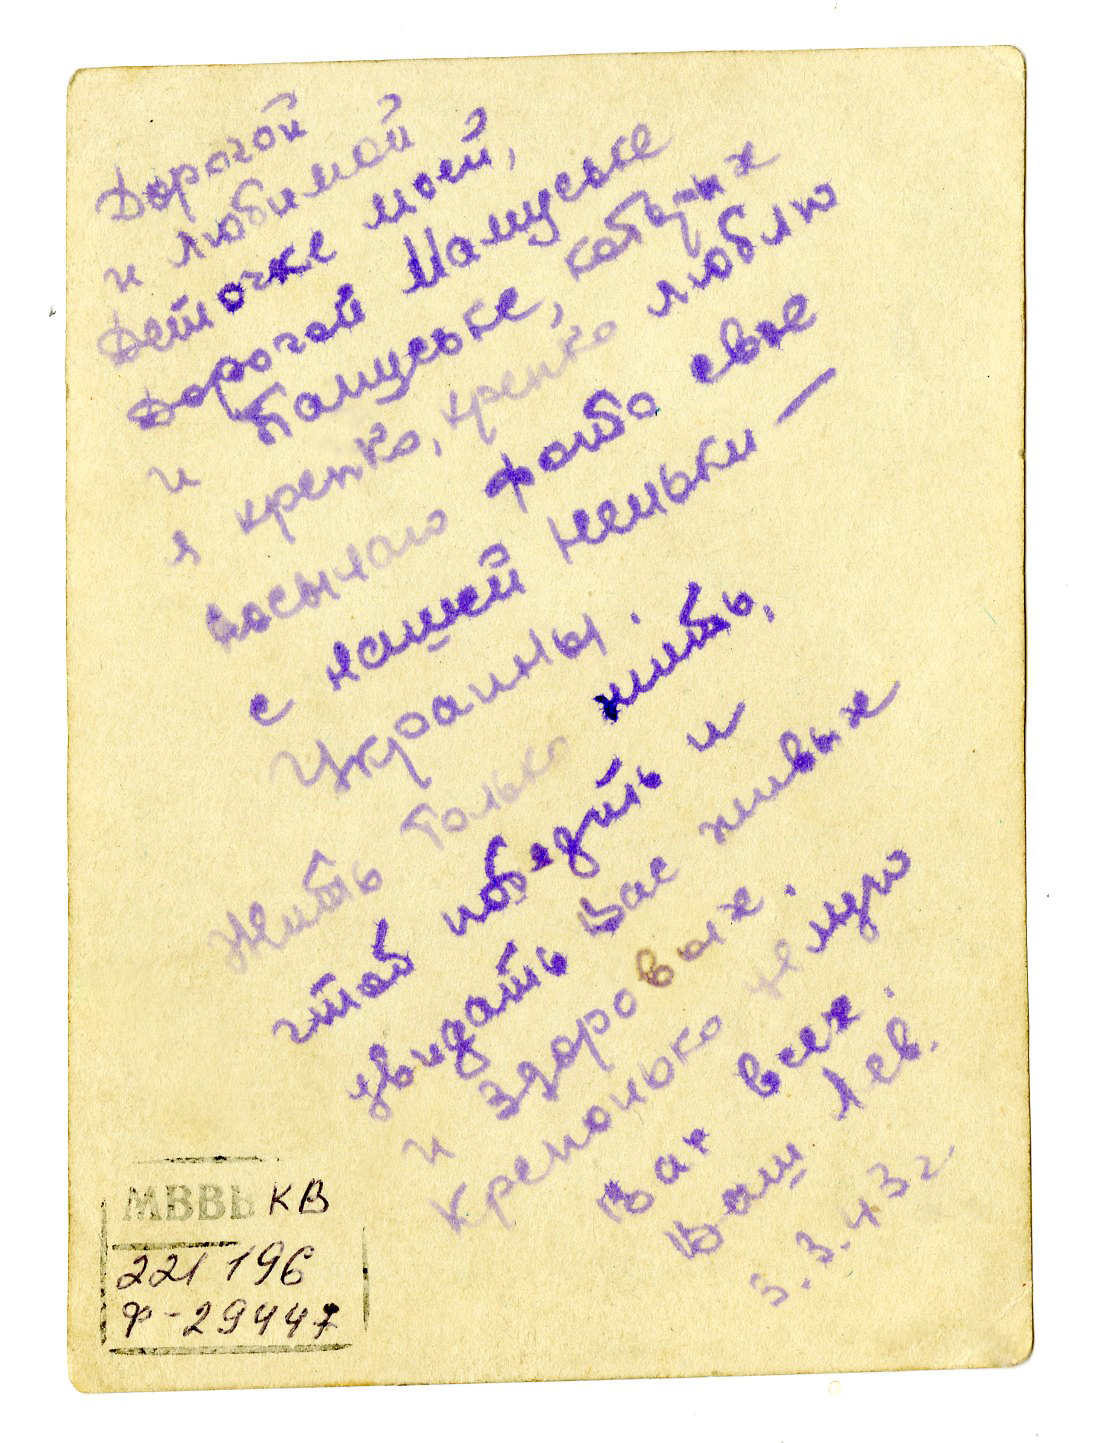 Дорогой
и любимой
Деточке моей,
дорогой Мамуське
и Папуське, которых
я крепко, крепко люблю
посылаю фото свое
с нашей неньки —
Украины.
Жить только жить,
чтоб победить и
увидать Вас живых
и здоровых.
Крепонько целую
Вас всех.
Ваш Лев.
3.3.43 г.
КВ
221196
Ф-29447